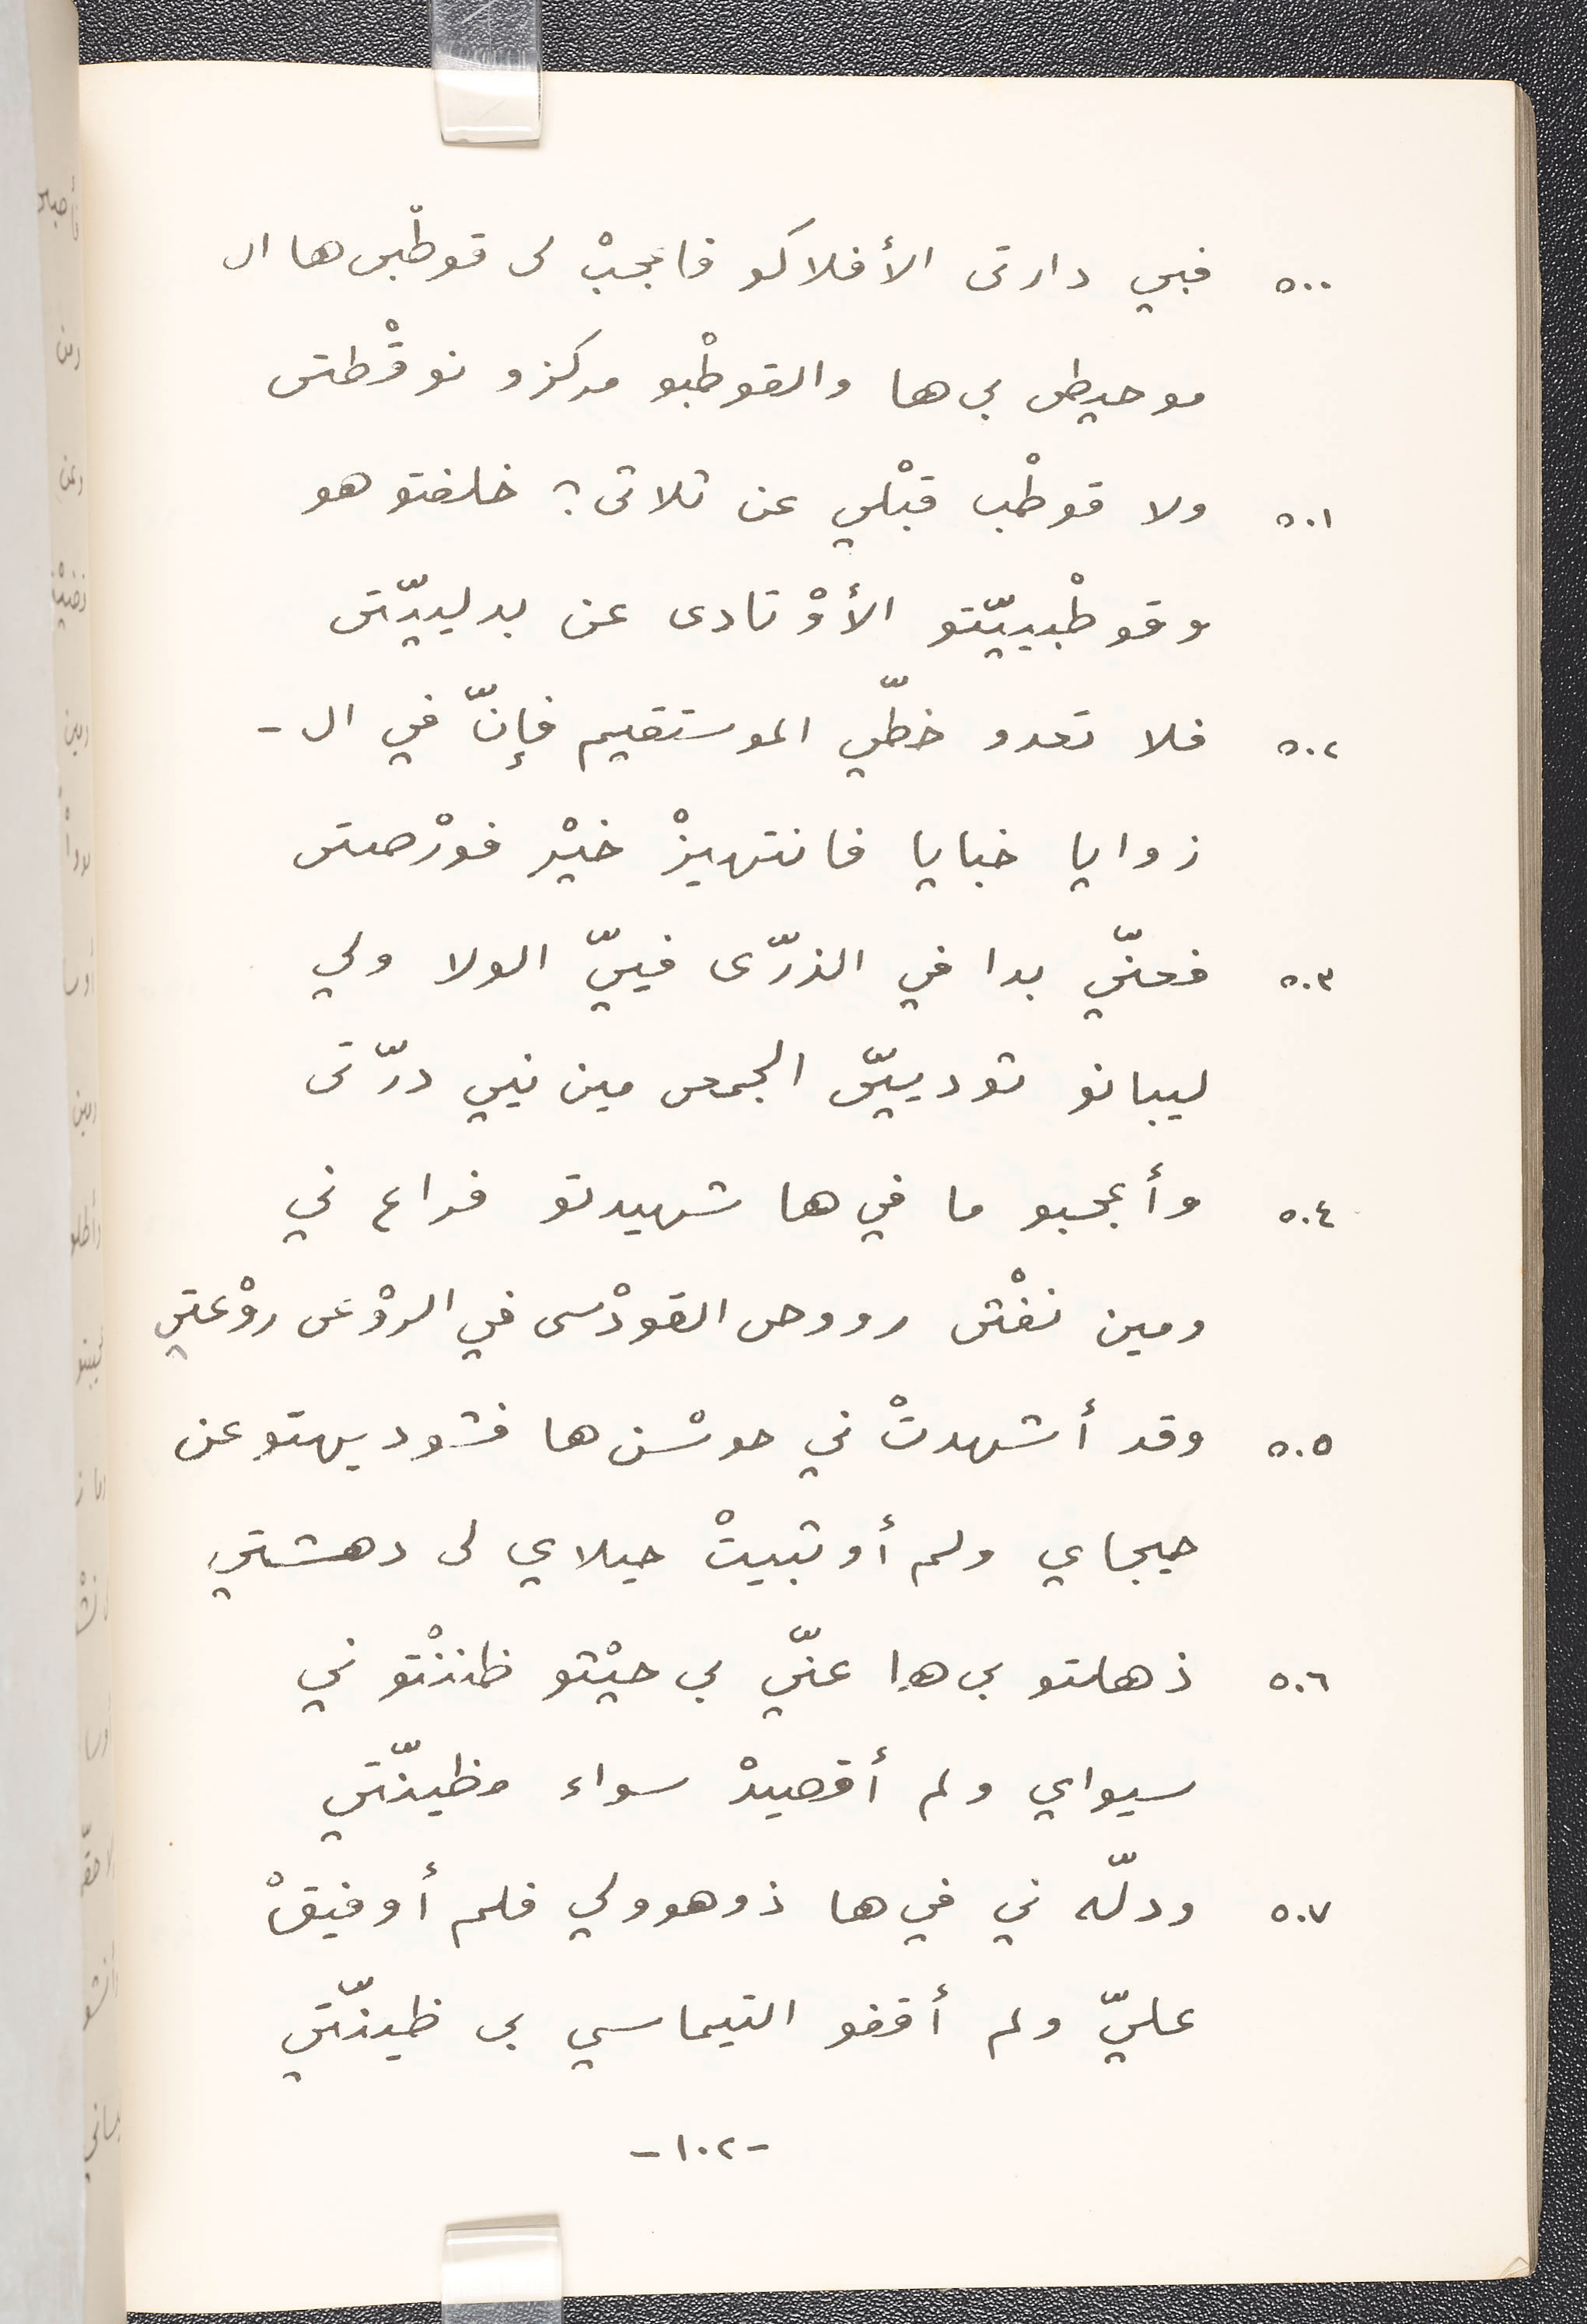 ٥٠٠ فبي دارتى الأفلاكو فاعجبْ لى قوطْبى ها ال
موحيطى بى ها والقوطْبو مركزو نوقْطتى
٥٠١ ولا قوطْب قبْلي عن ثلاثى ؟ خلفتو هو
وقوطْبييّتو الأوْتادى عن بدلييّتى
٥٠٢ فلا تعدو خطّي الموستقيم فإنّ في ال -
زوايا خبايا فانتهيزْ خيْر فورْصتى
٥٠٣ فعنّي بدا في الذرّى فييّ الولا ولي
ليبانو ثودييّى الجمعى مين نيي درّتى
٥٠٤ وأعجبو ما في ها شهيدتو فراع ني
ومين نفْثى رووحى القودْسى في الروْعى روْعتي
٥٠٥ وقد أشهدتْ ني حوسْن ها فشوديهتو عن
حيجاي ولم أوثبيتْ حيلاي لى دهشتي
٥٠٦ ذهلتو بى ها عنّي بى حيْثو ظننْتو ني
سيواي ولم أقصيدْ سواء مظينّتي
٥٠٧ ودلّه ني في ها ذوهوولي فلم أوفيقْ
عليّ ولم أقفو التيماسي بى ظينّتي
-١٠٢-